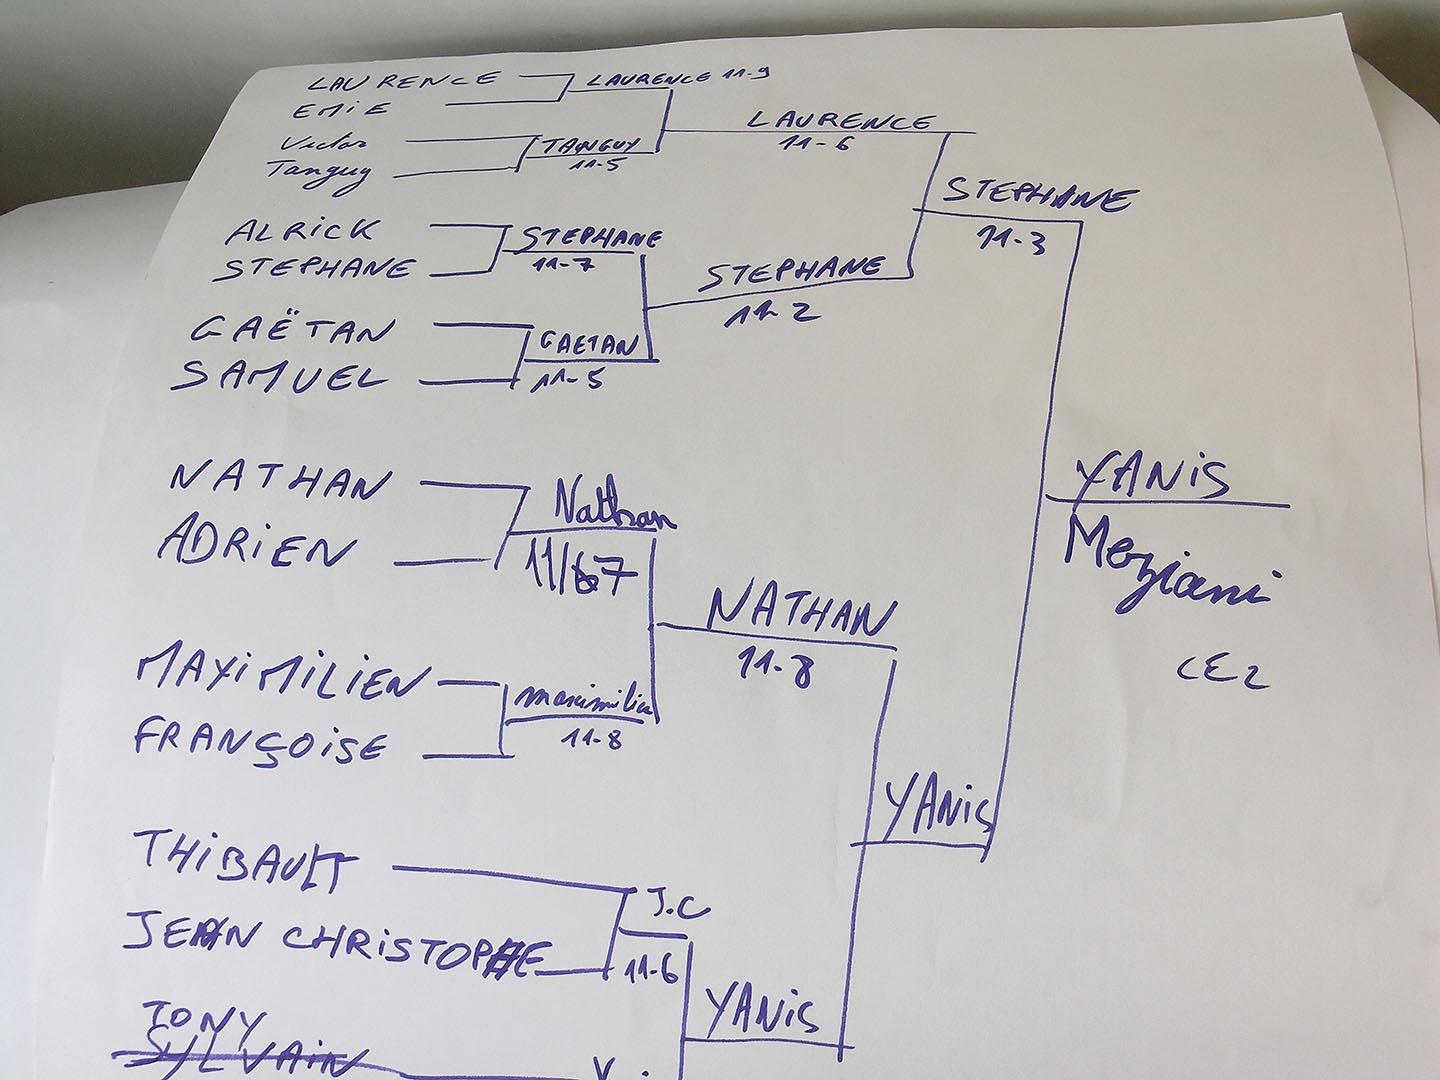 LAURENCE
EMIE
LAURENCE 11-9
Victor
Tanguy
TANGUY
11-5
LAURENCE
11-6
ALRICK
STEPHANE
STEPHANE
11-7
GAËTAN
SAMUEL
GAETAN
11-5
STEPHANE
11-2
STEPHANE
11-3
NATHAN
ADRIEN
Nathan
MAXIMILIEN
FRANÇOISE
11-8
NATHAN
11-8
THIBAULT
JEAN CHRISTOPHE
J.C
11-6
TONY
SYLVAIN
YANIS
YANIS
YANIS
Meziani
CE2